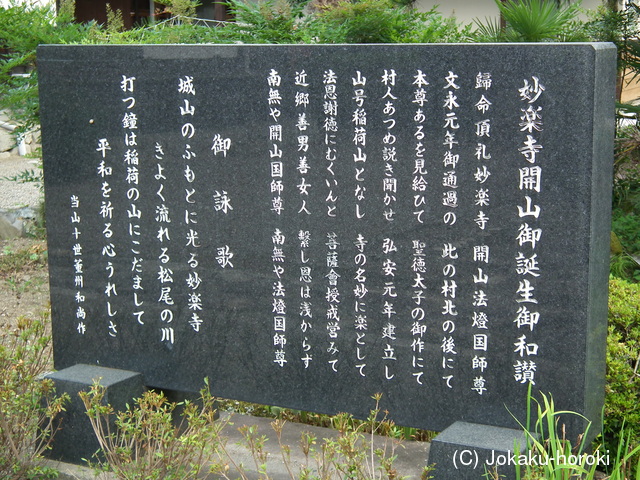 妙楽寺開山御誕生御和讃
歸命頂礼妙楽寺　開山法燈国師尊
文永元年御通過の　此の村北の後にて
本尊あるを見給ひて　聖徳太子の御作にて
村人あつめ説き開かせ　弘安元年建立し
山号稲荷山となし　寺の名妙に楽として
法恩謝徳にむくいんと　菩薩會授戒営みて
近郷善男善女人　繋し恩は浅からず
南無や開山国師尊　南無や法燈国師尊
御詠歌
城山のふもとに光る妙楽寺
きよく流れる松尾の川
打つ鐘は稲荷の山にこだまして
平和を祈る心うれしさ
当山十世董州和尚作
(C) Jokaku-horoki